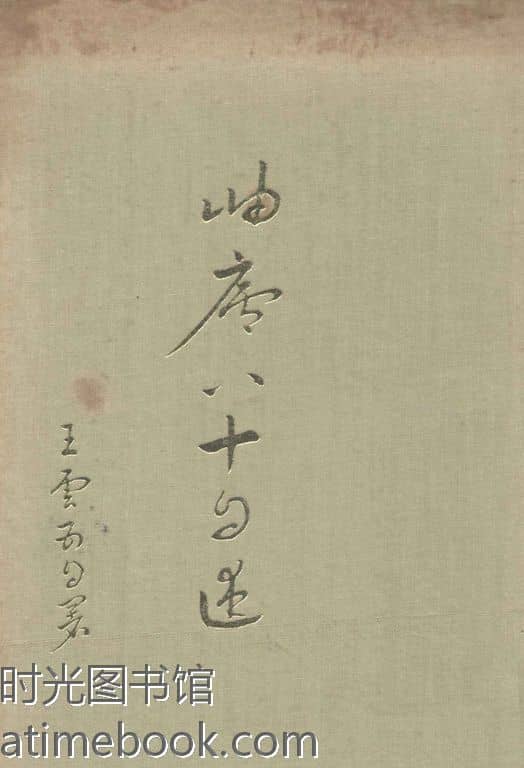 岫廬八十自述
王雲五自署
时光图书馆
atimebook.com